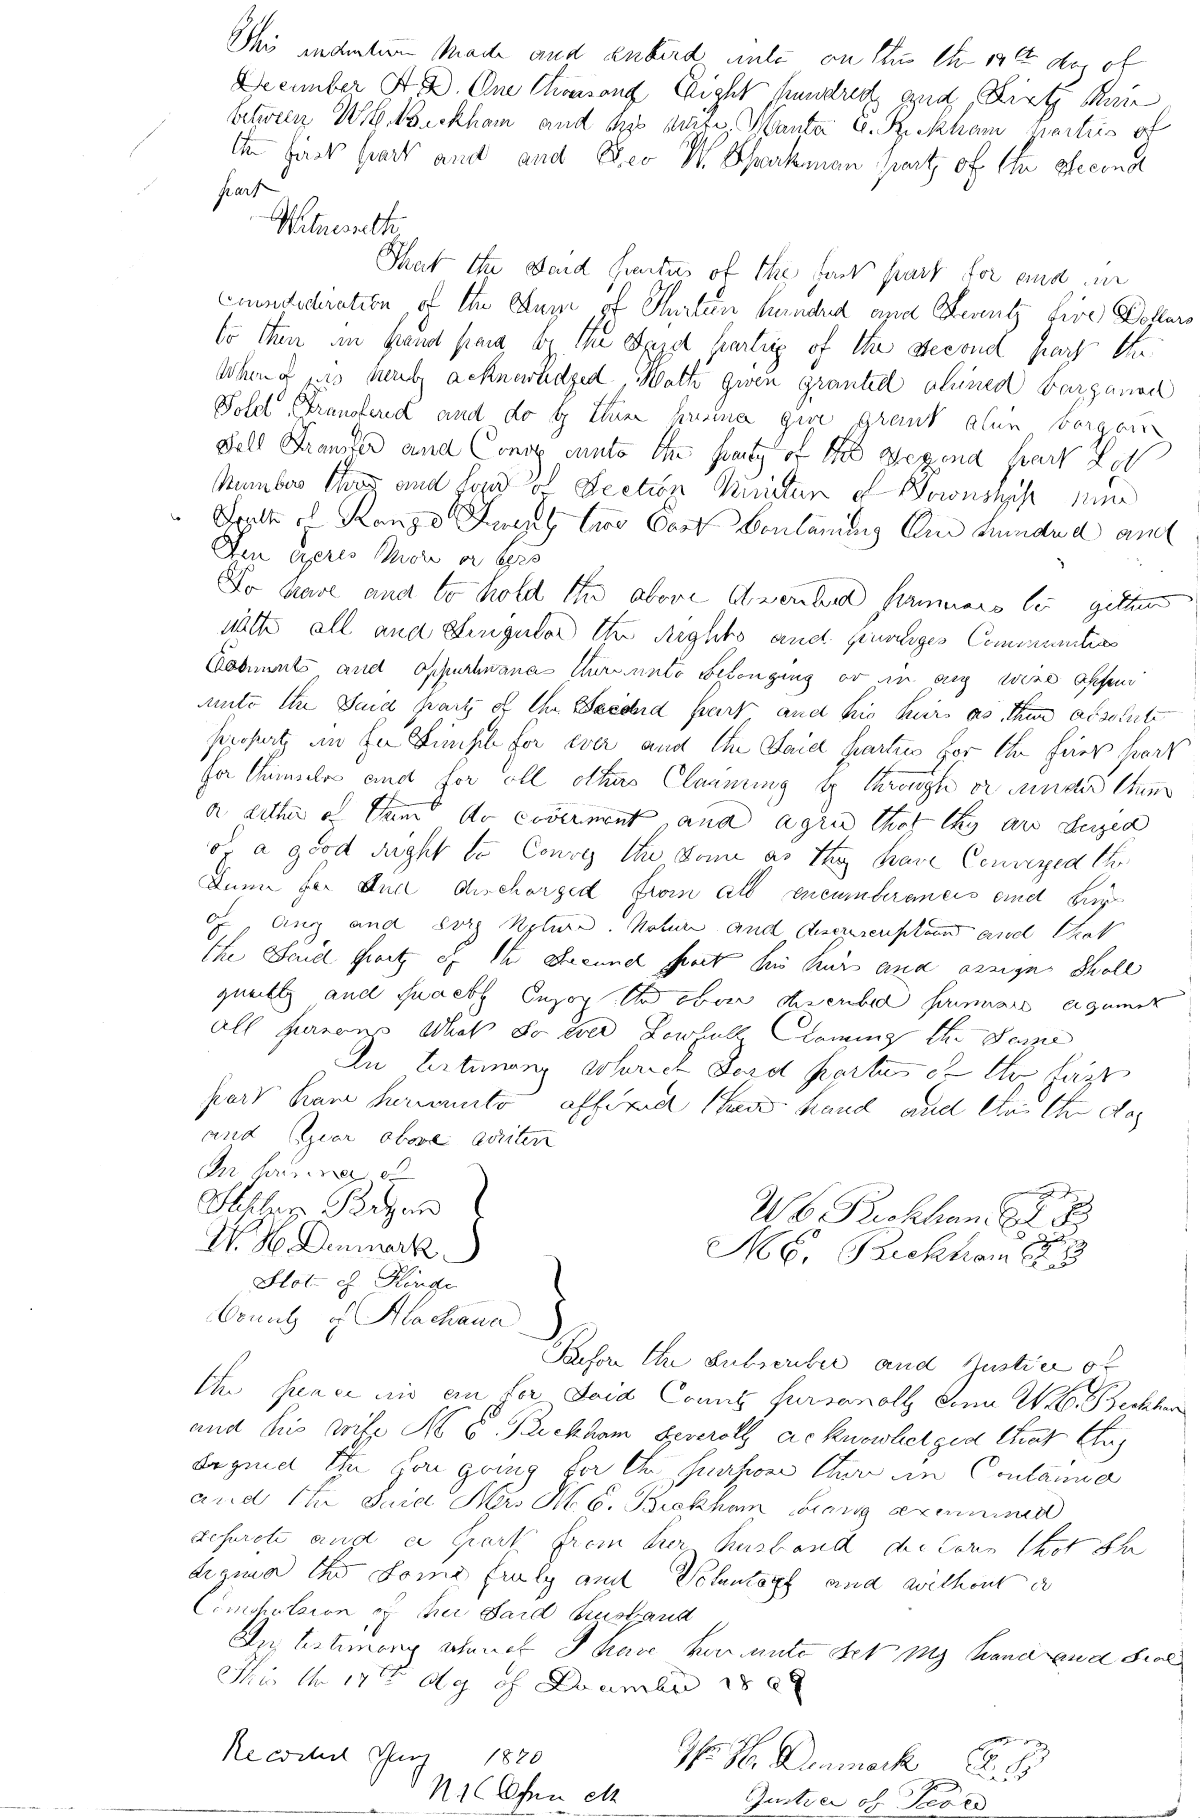 This indenture Made and enterd into on this the 17th day of
December A.D. One thousand Eight hundred and Sixty Nine
between W.C. Beckham and his wife M. E. Beckham parties of
the first part and and Geo W. Sparkman party of the Second
part
Witnesseth
That the Said parties of the first part for and in
Consideration of the Sum of Thirteen hundred and Seventy five Dollars
to them in hand paid by the Said parties of the second part the
Whereof is hereby acknowledged, Hath given granted aliened barganed
Sold Transfered and do by these give grant alien bargain
Sell Transfer and Convey unto the party of the Second part Lot
Numbers three and four of Section Nineteen of Township nine
South of Range Twenty two East Containing One hundred and
Ten acres More or less
To have and to hold the above described premises to gether
with all and Singular the rights and
and thereunto belonging or in any wise
unto the Said party of the Second part and his heirs as absolute
property in fee Simple for ever and the Said parties for the first part
for themselves and for all others Claiming by through or under them
or either of them do and agree that they are Seized
of a good right to Convey the Same as they have Conveyed the
Same and discharged from all encumberances and
of any and evry Nature. Nature and and that
the Said party of the Second part his heirs and assigns Shall
and Enjoy the above described premises against
all persons What So ever Lawfully Claiming the Same
In testimony whereof Said parties of the first
part have hereunto affixed their hand and this the day
and Year above writen
In of
Stephen Bryan
W. H. Denmark
W C. Beckham
M E. Beckham
State of
County of Alachua
Before the Subscriber and Justice of
the peace in an for Said County personally Came W.C. Beckham
and his wife M E. Beckham severally acknowledged that they
Signed the fore going for the purpose there in Contained
and the Said Mrs M. E. Beckham being examined
seperate and a part from her husband declares that She
Signed the Same freely and and without a
Compulsion of her Said husband
In testimony whereof I have here unto Set My hand and Seal
This the 17th day of December 1869
Recorded 1870
W. H. Denmark
Justice of Peace